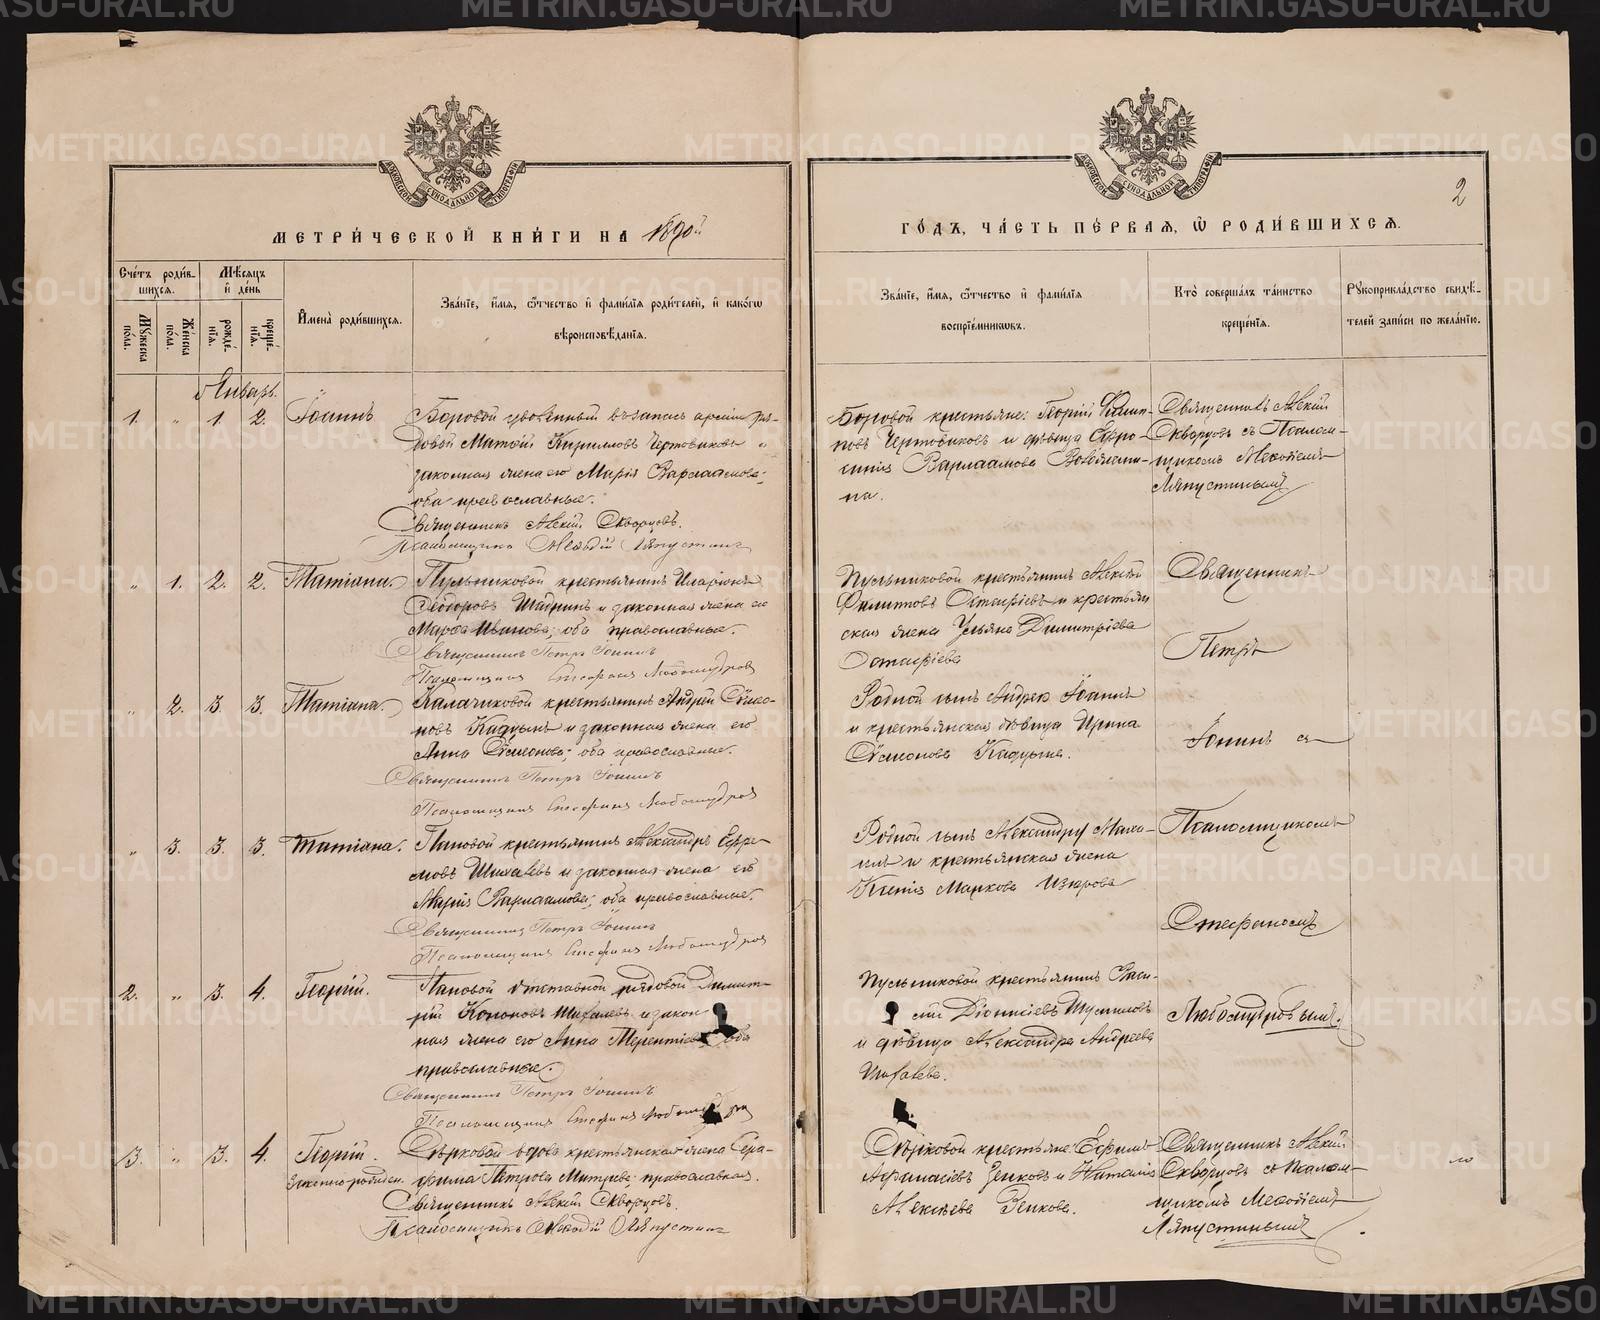 МЕТРИ́ЧЕСКОЙ КНИ́ГИ НА 1890й
Сче́тъ роди́в-
шихся.
Мѣсяцъ
и́ де́нь
И҆мена̀ роди́вшихся.
Зва́нїе, и҆мя, ѻ҆́тчество и҆ фами́лїя роди́телей, и҆ како́гѡ
вѣроисповѣ́данїя.
Мꙋ́жеска
по́ла.
Же́нска
по́ла.
рожде́-
нїя.
креще́-
нїя.
Январь.
1. " 1. 2. Іоаннъ
Боровой уволенный въ запасъ арміи ря-
довой Матѳій Кирилловъ Чертовиковъ и
законная жена его Марія Варлаамова;
оба православные.
Священникъ Алексій Скворцовъ.
Псаломщикъ Меѳодій Ляпустинъ
" 1. 2. 2. Татіана.
Пульниковой крестьянинъ Иларіонъ
Ѳеодоровъ и законная жена его
Марѳа Иванова; оба православные.
Священникъ Петръ Іонинъ
Псаломщикъ Стефанъ Любомудровъ
" 2. 3. 3. Татіана.
Калачиковой крестьянинъ Андрей Сѵмео-
новъ Кадцынъ и законная жена его
Анна Сѵмеонова; оба православные.
Священникъ Петръ Іонинъ
Псаломщикъ Стефанъ Любомудровъ
" 3. 3. 3. Татіана.
Пановой крестьянинъ Александръ Ефре-
мовъ Шихалевъ и законная жена его
Марія Варлаамова; оба православные.
Священникъ Петръ Іонинъ
Псаломщикъ Стефанъ Любомудровъ
2. " 3. 4. Георгій.
Пановой отставной рядовой Димит-
рій Кононовъ Шихалевъ и закон-
ная жена его Анна Терентіева оба
православные.
Священникъ Петръ Іонинъ
Псаломщикъ Стефанъ
3. " 3. 4. Георгій.
незаконнорожден.
вдова крестьянская жена Сера-
фима Петрова; православная.
Священникъ Алексій Скворцовъ.
Псаломщикъ Меѳодій Ляпустинъ
2
ГО́ДЪ, ЧА́СТЬ ПЕ́РВАЯ, Ѡ҆ РОДИ́ВШИХСЯ.
Зва́нїе, и҆мя, ѻ҆́тчество и҆ фами́лїя
воспрїе́мникѡвъ.
Кто̀ соверша́лъ та́инство
креще́нїя.
Рꙋкоприкла́дство свидѣ́-
телей за́писи по жела́нїю.
Боровой крестьяне: Георгій Филип-
повъ Чертовиковъ и дѣвица Евфро-
синія Варлаамова
на.
Священникъ Алексій
Скворцовъ съ Псалом-
щикомъ Меѳодіемъ
Ляпустинымъ
Пульниковой крестьянинъ Алексѣй
Филипповъ Остафіевъ и крестьян
ская жена Ульяна Димитріева
Остафіева
Священникъ
Петръ
Родной сынъ Андрея Іоаннъ
и крестьянская дѣвица Ирина
Сѵмеонова Кадцына.
Іонинъ съ
Родной сынъ Александру Миха-
илъ и крестьянская жена
Ксенія Маркова Изюрова
Псаломщикомъ
Стефаномъ
Пульниковой крестьянинъ Васи-
лій Діонисіевъ
и дѣвица Александра Андреева
Шихалева.
Любомудровымъ.
крестьяне: Ефимъ
Аѳанасіевъ Зенковъ и Наталія
Алексѣева Зенкова.
Священникъ Алексій
Скворцовъ со Псалом-
щикомъ Меѳодіемъ
Ляпустинымъ
METRIKI.GASO-URAL.RU